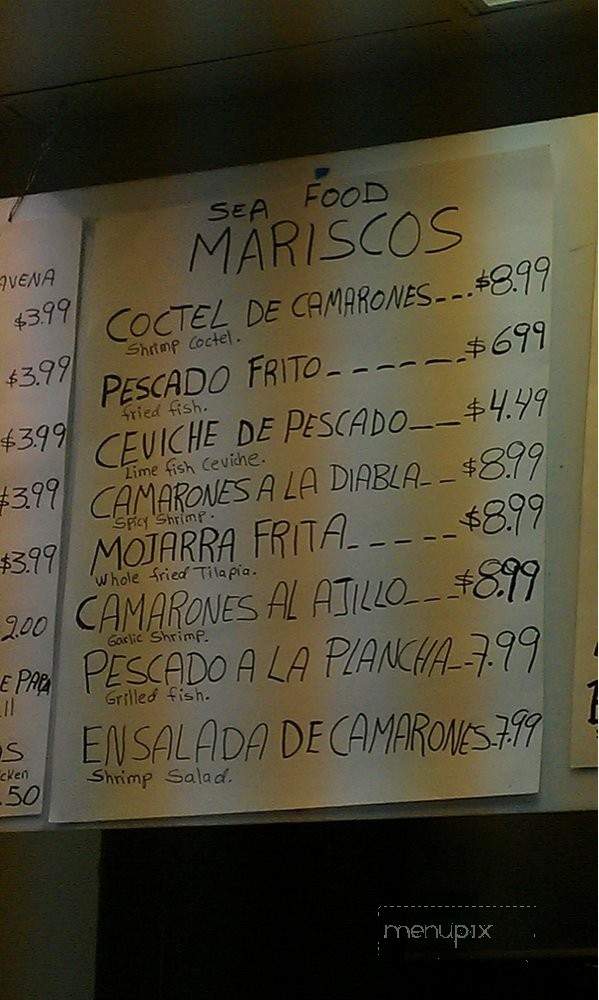 AVENA
$3.99
$3.99
$3.99
$3.99
$3.99
2.00
E PAPA
ll
OS
cken
.50
SEA FOOD
MARISCOS
COCTEL DE CAMARONES---$8.99
Shrimp Coctel.
PESCADO FRITO-------$699
fried fish.
CEVICHE DE PESCADO---$4.49
Lime fish Ceviche.
CAMARONES A LA DIABLA--$8.99
Spicy Shrimp.
MOJARRA FRITA-----$8.99
Whole fried Tilapia.
CAMARONES AL AJILLO---$8.99
Garlic Shrimp.
PESCADO A LA PLANCHA--7.99
Grilled fish.
ENSALADA DE CAMARONES-7.99
Shrimp Salad.
menupix